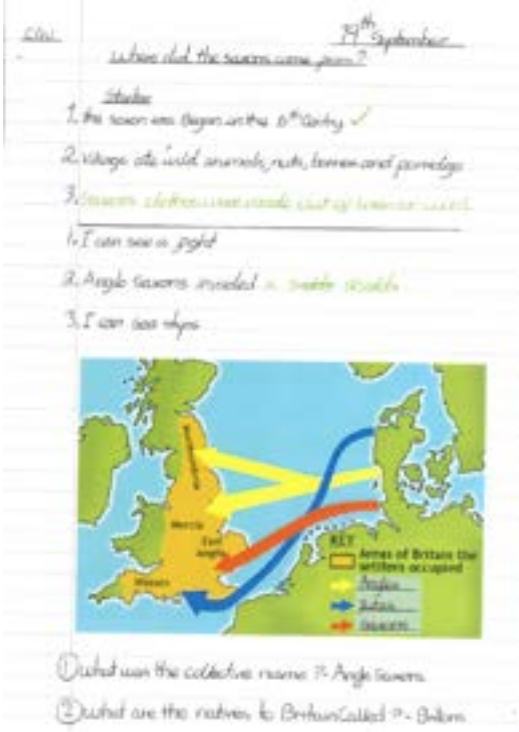 C.W.
19th September
Where did the saxons come from?
Starter
1. the saxon era Began in the 5th Centry ✓
2. Village ate wild animals, nuts, berries and porridge
3. Saxons clothes were made out of
1. I can see a fight
2. Anglo Saxons invaded
3. I can see ships
Mercia
East
Anglia
Wessex
KEY
Areas of Britain the
settlers occupied
Angles
Jutes
Saxons
① what was the collective name?- Anglo Saxons
② what are the natives to Britain Called?- Britons